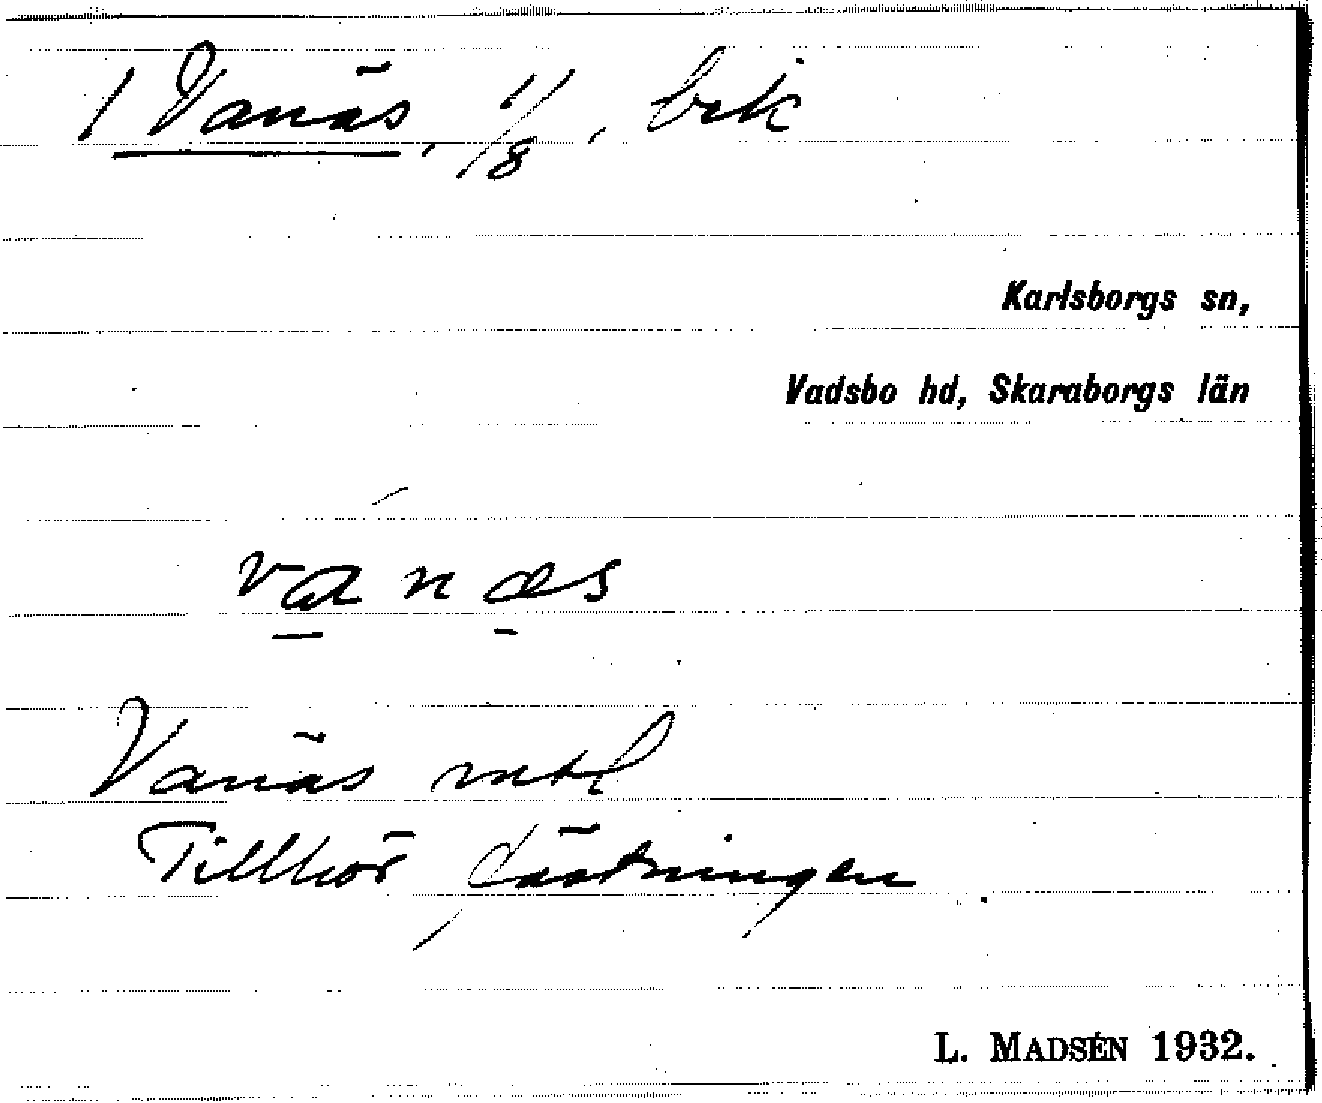 1 Vanäs, 1/8, bek
Karlsborgs sn,
Vadsbo hd, Skaraborgs län
va n æs
Vanäs mtl
Tillhör fästningen
L. MADSÉN 1932.